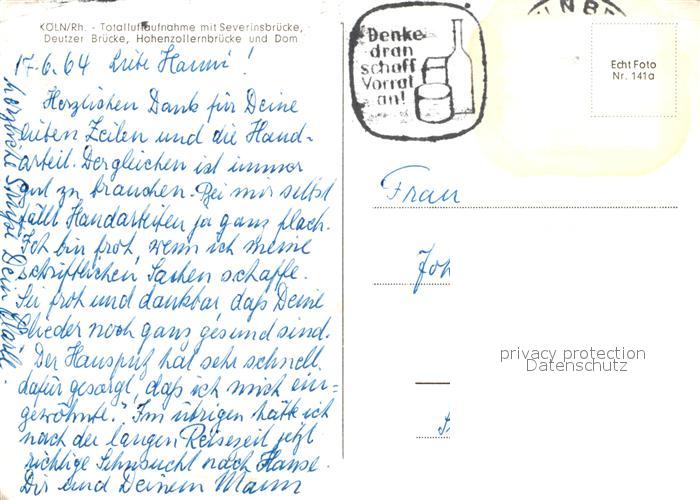 KÖLN/Rh. - Totalluftaufnahme mit Severinsbrücke,
Deutzer Brücke, Hohenzollernbrücke und Dom
17.6.64 Liebe Hanni!
Herzlichen Dank für Deine
lieben Zeilen und die Hand-
arbeit. Dergleichen ist immer
gut zu brauchen. Bei mir selbst
fällt Handarbeiten ja ganz flach.
Ich bin froh, wenn ich meine
schriftlichen Sachen schaffe.
Sei froh und dankbar, daß Deine
Glieder noch ganz gesund sind.
"Der Hausputz hat sehr schnell
dafür gesorgt, daß ich mich ein=
gewöhnte." Im übrigen hätte ich
nach der langen Reisezeit jetzt
richtige Sehnsucht nach Hause.
Dir und Deinem Mann
herzliche Grüße Dein
Denke
dran
schaff
Vorrat
an!
Echt Foto
Nr. 141a
Frau
Joh
privacy protection
Datenschutz